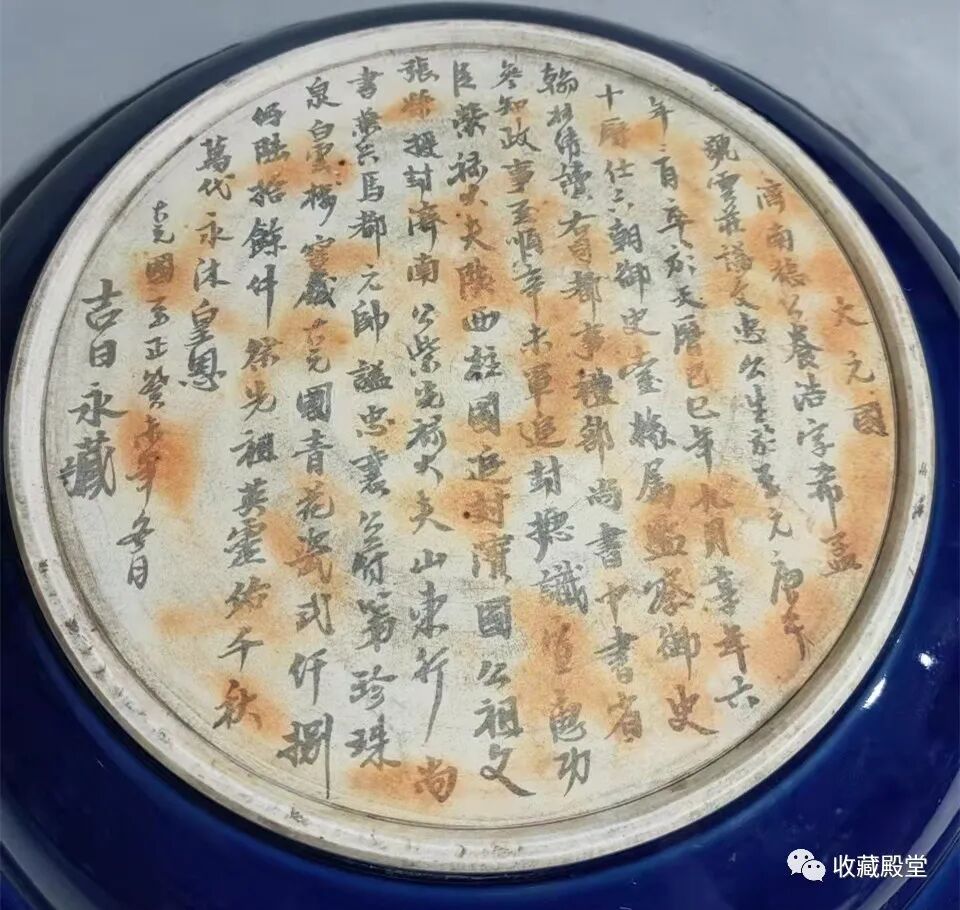 大元國
濟南公養浩字希孟
號雲莊謚文忠公生於至元庚午
年卒於天曆己巳年七月享年六
十曆仕六朝御史臺椽屬監察御史
翰林侍讀右司都事禮部尚書中書省
參知政事至順年末軍追封攄誠宣惠功
臣榮祿大夫陝西柱國追封濱國公祖文
張榮授封濟南公紫光祿大夫山東行尚
書兼兵馬都元帥謚忠襄公府第珍珠
泉皇雲樓窖藏大元國青花瓷貳仟捌
佰陆拾餘件 祭先祖英靈佑千秋
萬代永沐皇恩
大元國至正癸未年冬月
吉日永藏
收藏殿堂